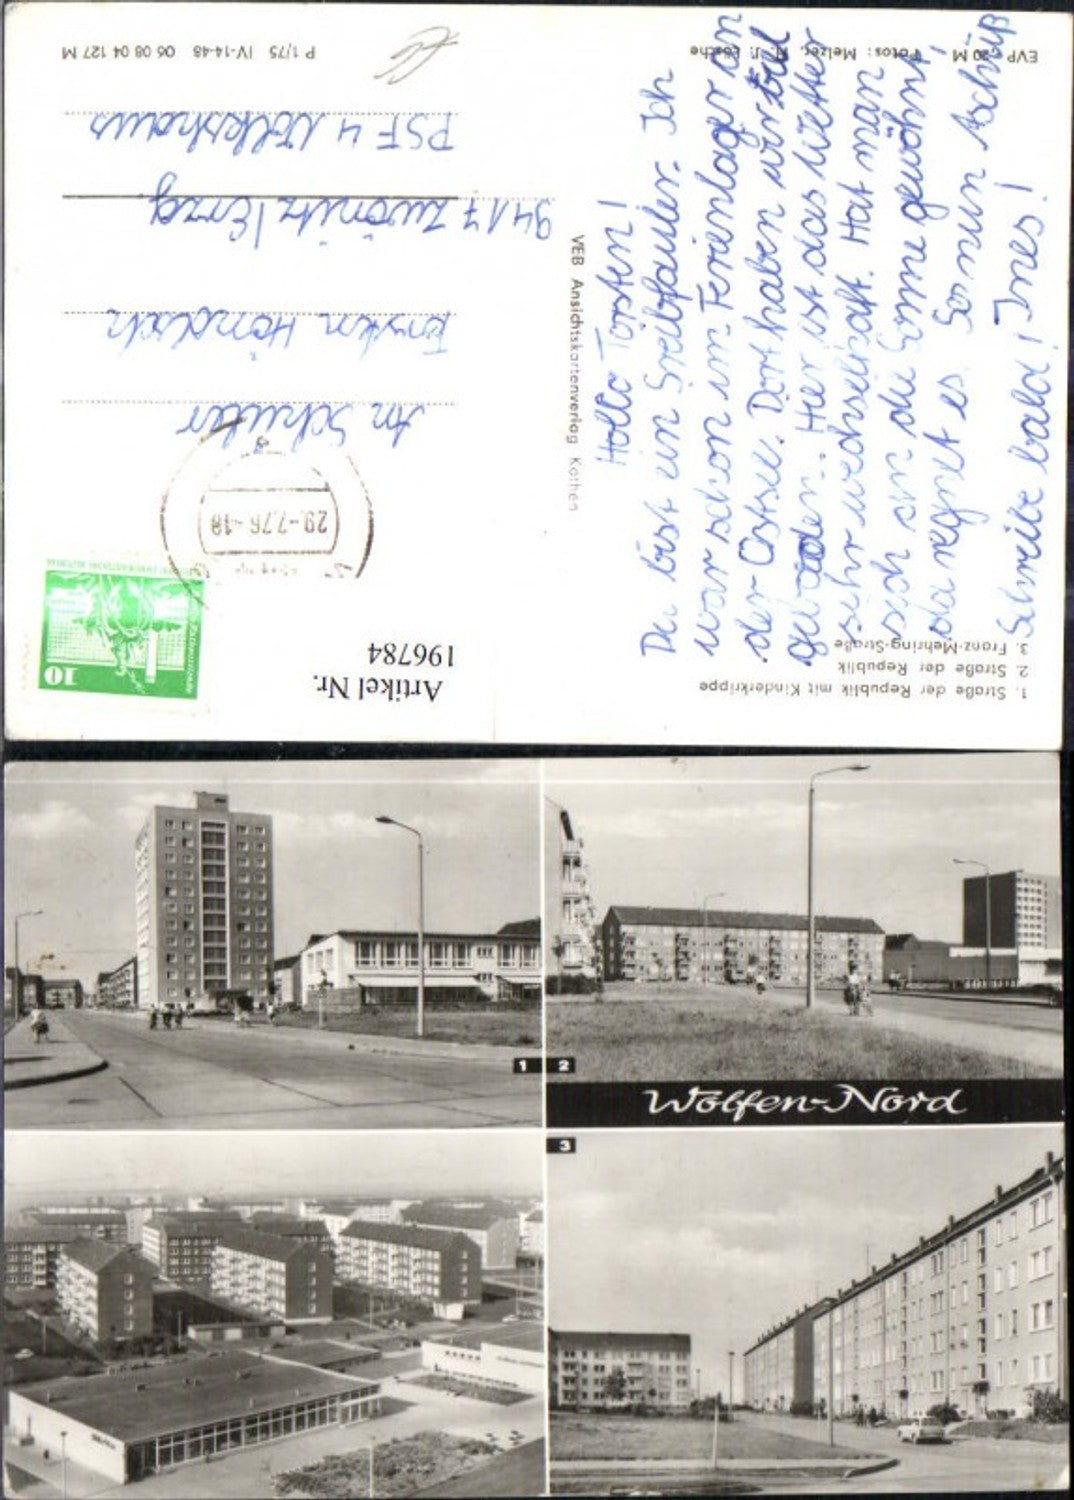 1. Straße der Republik mit Kinderkrippe
2. Straße der Republik
3. Franz-Mehring-Straße
Artikel Nr.
196784
10
29.-7.76-18
Hallo Torsten!
Du bist ein Sreibfauler. Ich
war schon im Ferienlager an
der Ostsee. Dort haben wir viel
gebaden. Hier ist das Wetter
sehr wechselhaft. Hat man
sich an die Sonne gewöhnt,
da regnet es. So nun Aschüß
Schreibe bald! Ines!
An Schüler
Torsten
9417 Zwönitz/Erzg.
PSF 4 Völkerhaus
VEB Ansichtskartenverlag Köthen
EVP -,20 M Fotos: Melzer, H. J. Lösche
P 1/75 IV-14-48 06 08 04 127 M
1
2
Wolfen-Nord
3